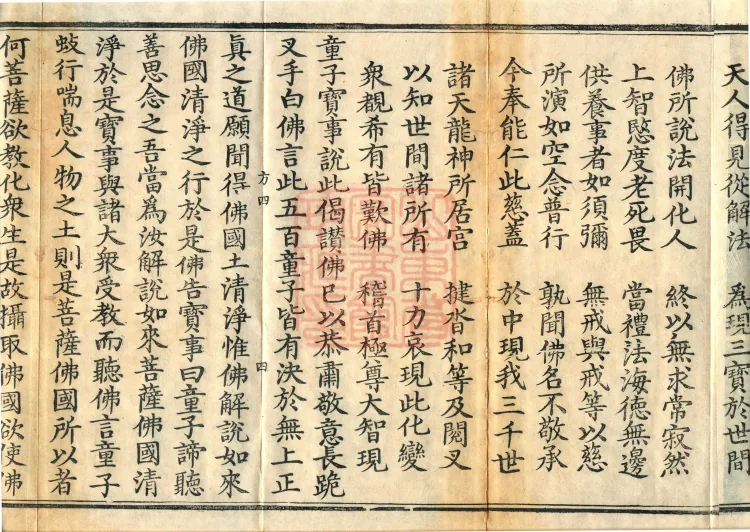 天人得見從解法　為現三寶於世間
佛所說法開化人　終以無求常寂然
上智愍度老死畏　當禮法海德無邊
供養事者如須彌　無戒與戒等以慈
所演如空念普行　孰聞佛名不敬承
今奉能仁此慈蓋　於中現我三千世
諸天龍神所居宮　揵沓和等及閱叉
以知世間諸所有　十力哀現此化變
衆觀希有皆歎佛　稽首極尊大智現
童子寶事說此偈讃佛已以恭肅敬意長跪
叉手白佛言此五百童子皆有決於無上正
方四　四
眞之道願聞得佛國土清淨惟佛解說如來
佛國清淨之行於是佛告寶事曰童子諦聽
善思念之吾當爲汝解說如來菩薩佛國清
淨於是寶事與諸大衆受教而聽佛言童子
蚑行喘息人物之土則是菩薩佛國所以者
何菩薩欲教化衆生是故攝取佛國欲使佛